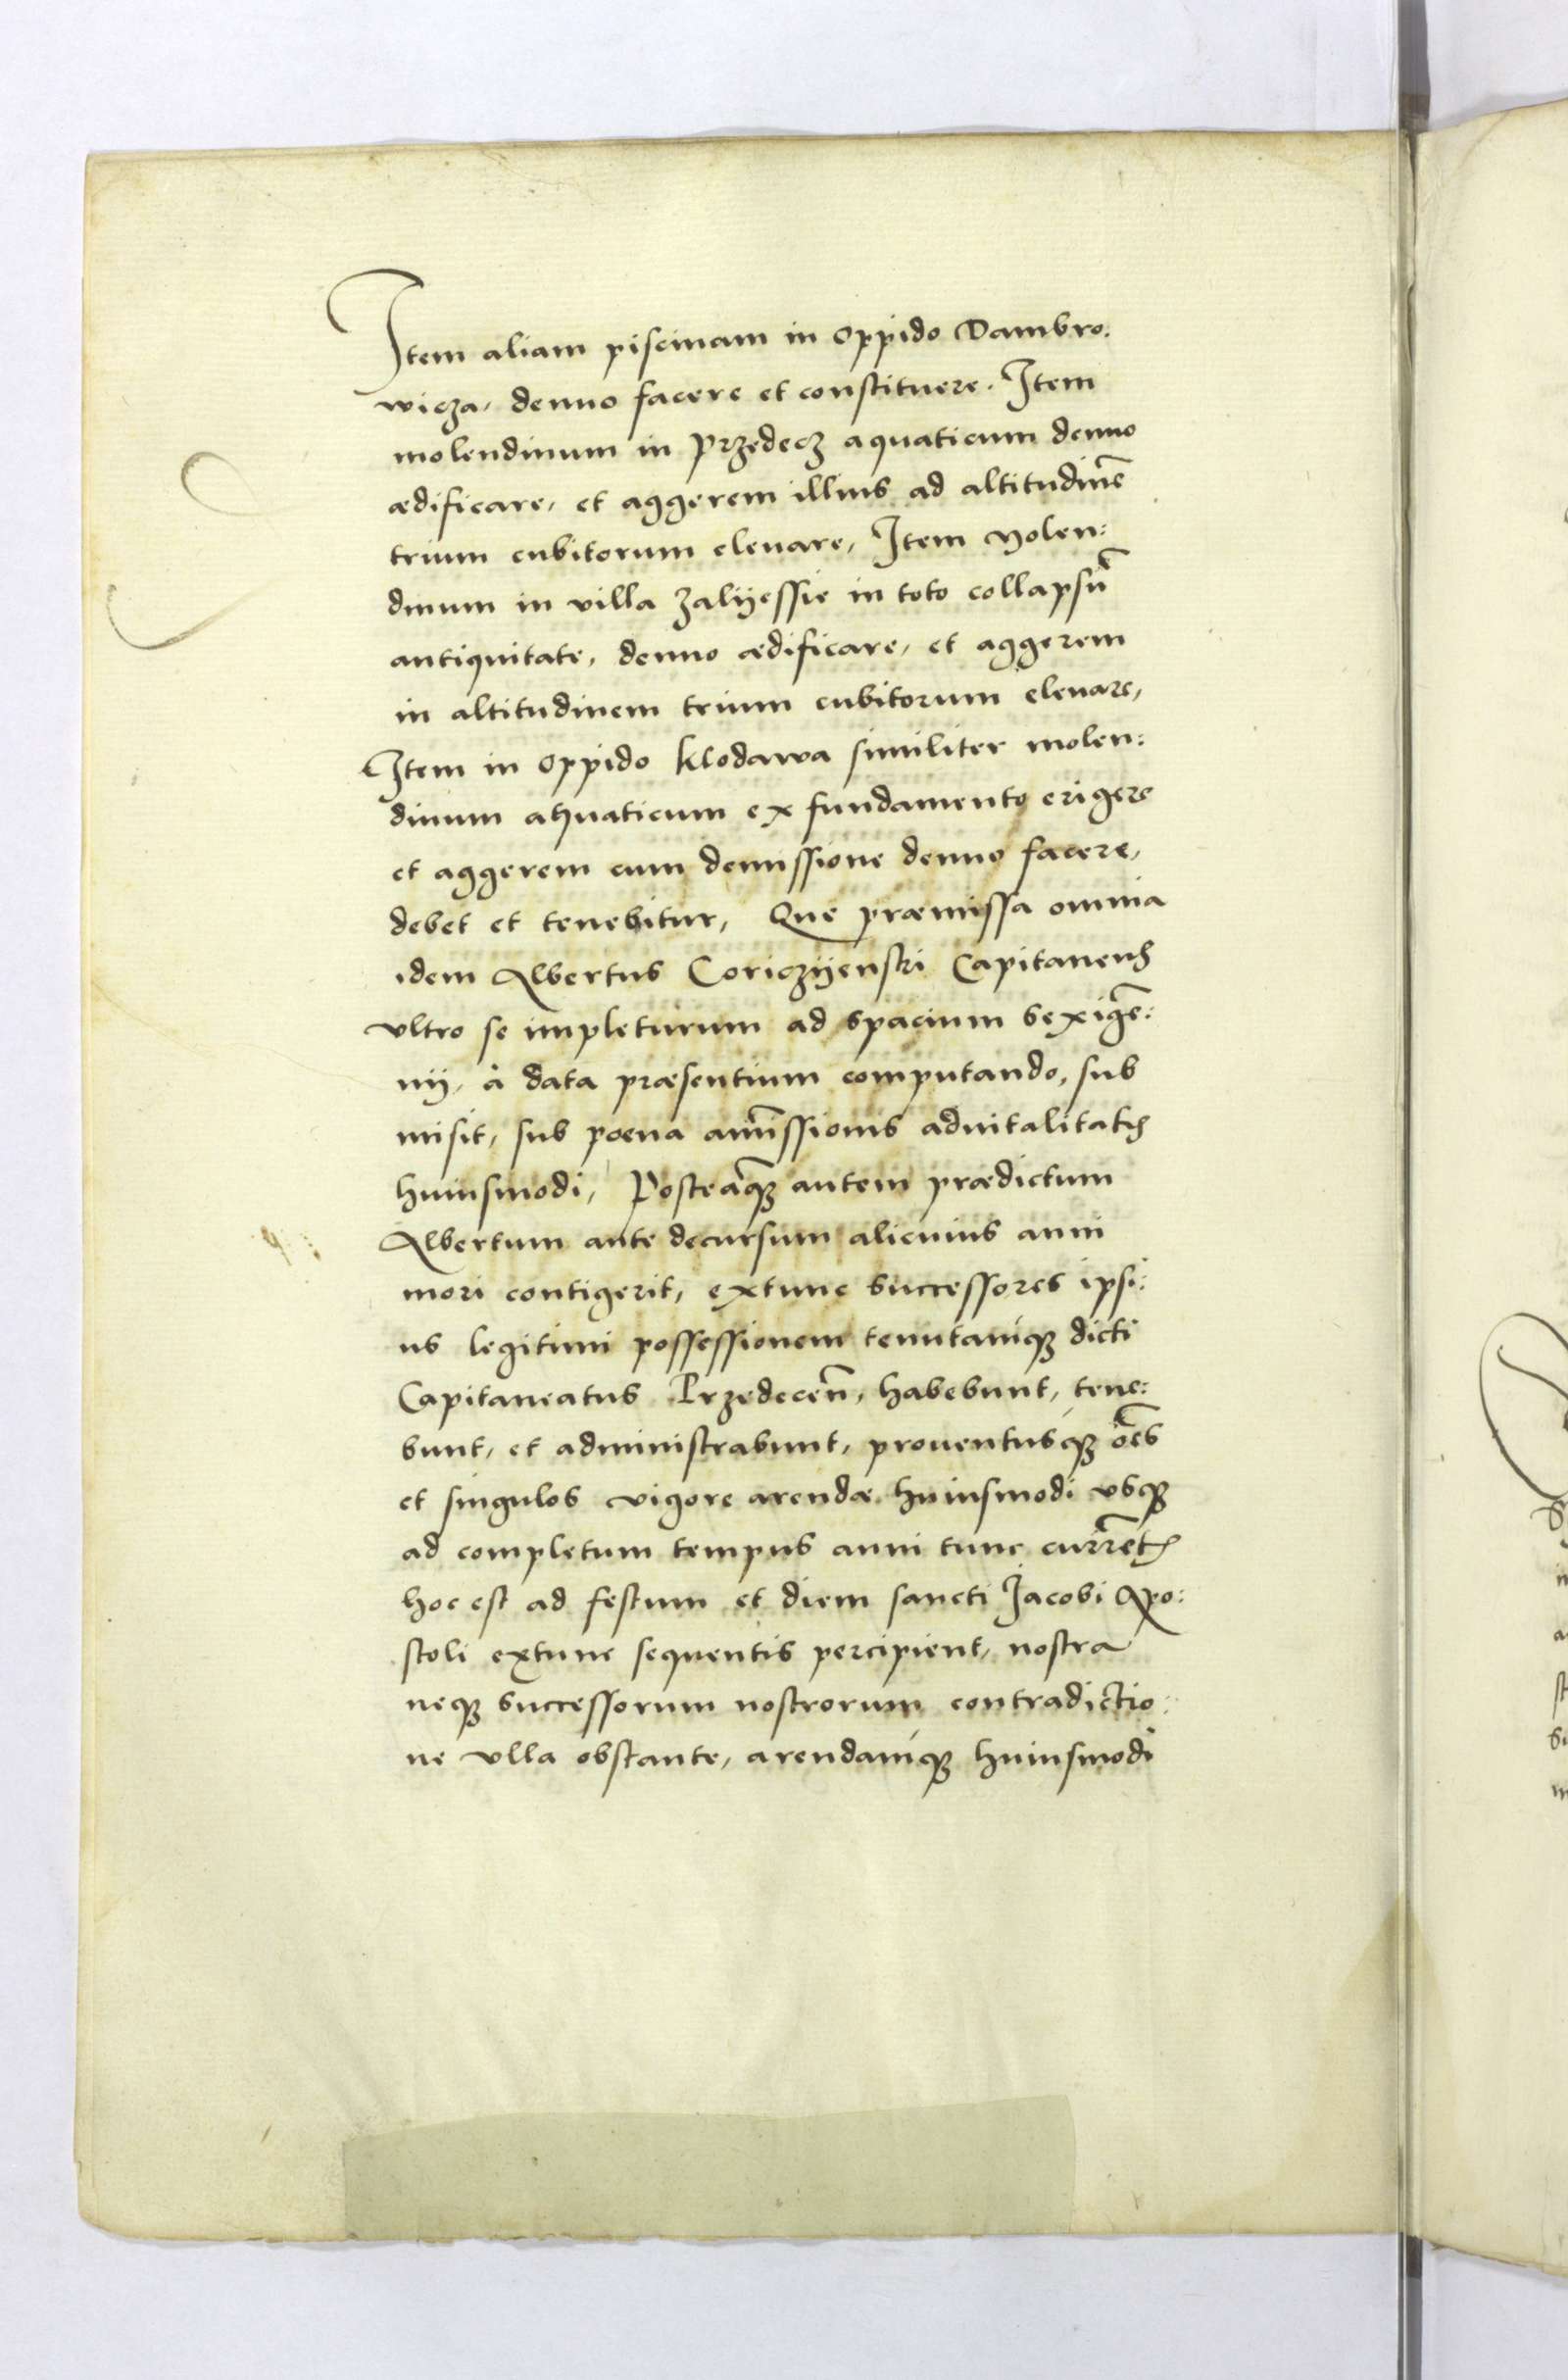 Item aliam piscinam in oppido Dambro:
wicza, denuo facere et constituere. Item
molendinum in Przedecz aquaticum denuo
ædificare, et aggerem illius ad altitudinẽ
trium cubitorum eleuare, Item Molen:
dinum in villa Zalijessie in toto collapsũ
antiquitate, denuo ædificare, et aggerem
in altitudinem trium cubitorum eleuare,
Item in oppido Klodawa similiter molen:
dinum aquaticum ex fundamento erigere
et aggerem cum demissione denuo facere,
debet et tenebitur, Que præmissa omnia
idem Albertus Coriczijenski Capitaneus
vltro se impleturum ad spacium sexigẽ:
nij, à data præsentium computando, sub
misit, sub poena amĩssionis aduitalitatis
huiusmodi, Posteaq̃ autem prædictum
Albertum ante decursum alicuius anni
mori contigerit, extunc successores ipsi:
us legitimi possessionem tenutamq; dicti
Capitaneatus Przedeceñ, habebunt, tene:
bunt, et administrabunt, prouentusq; oẽs
et singulos vigore arendæ huiusmodi vsq;
ad completum tempus anni tunc currẽtis
hoc est ad festum et diem sancti Jacobi Apo:
stoli extunc sequentis percipient, nostra
neq; successorum nostrorum contradictio:
ne vlla obstante, arendamq; huiusmodi